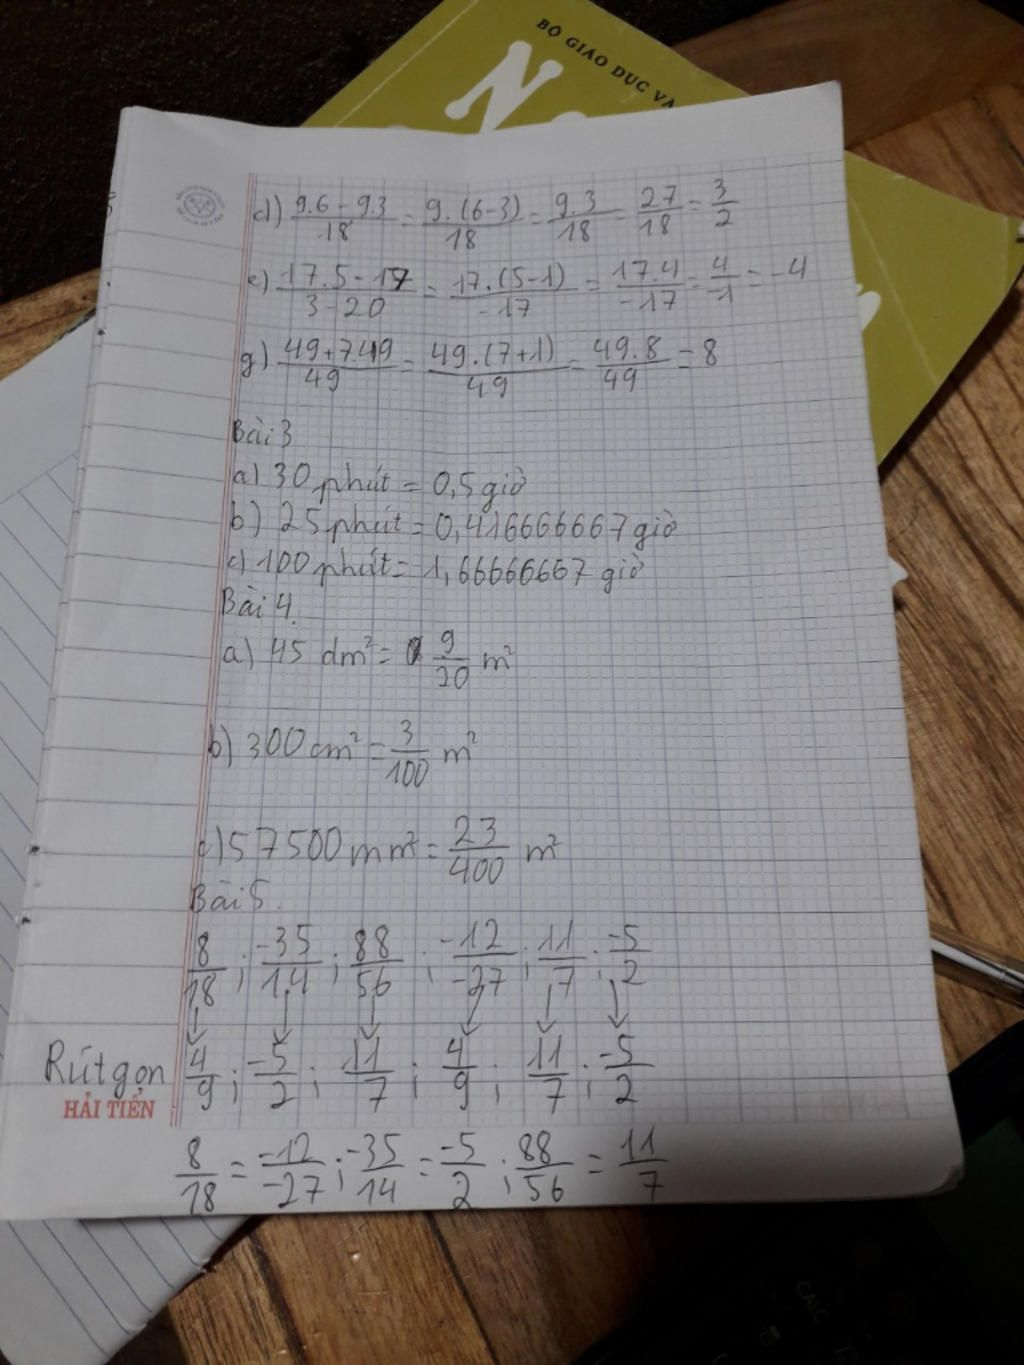 BỘ GIÁO DỤC VÀ
d) 9.6-9.3/18 = 9.(6-3)/18 = 9.3/18 = 27/18 = 3/2
e) 17.5-17/3-20 = 17.(5-1)/-17 = 17.4/-17 = 4/-1 = -4
g) 49+7.49/49 = 49.(7+1)/49 = 49.8/49 = 8
Bài 3
a) 30 phút = 0,5 giờ
b) 25 phút = 0,4166666667 giờ
c) 100 phút = 1,66666667 giờ
Bài 4.
a) 45 dm² = 9/20 m²
b) 300 cm² = 3/100 m²
c) 57500 mm² = 23/400 m²
Bài 5.
8/18 ; -35/14 ; 88/56 ; -12/-27 ; 11/7 ; -5/2
Rút gọn 4/9 ; -5/2 ; 11/7 ; 4/9 ; 11/7 ; -5/2
HẢI TIẾN
8/18 = -12/-27 ; -35/14 = -5/2 ; 88/56 = 11/7
CALC